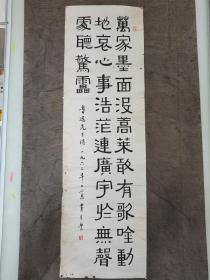 萬家墨面沒蒿萊敢有歌唫動
地哀心事浩茫連廣宇於無聲
處聽驚靁
魯迅先生詩 一九六三年